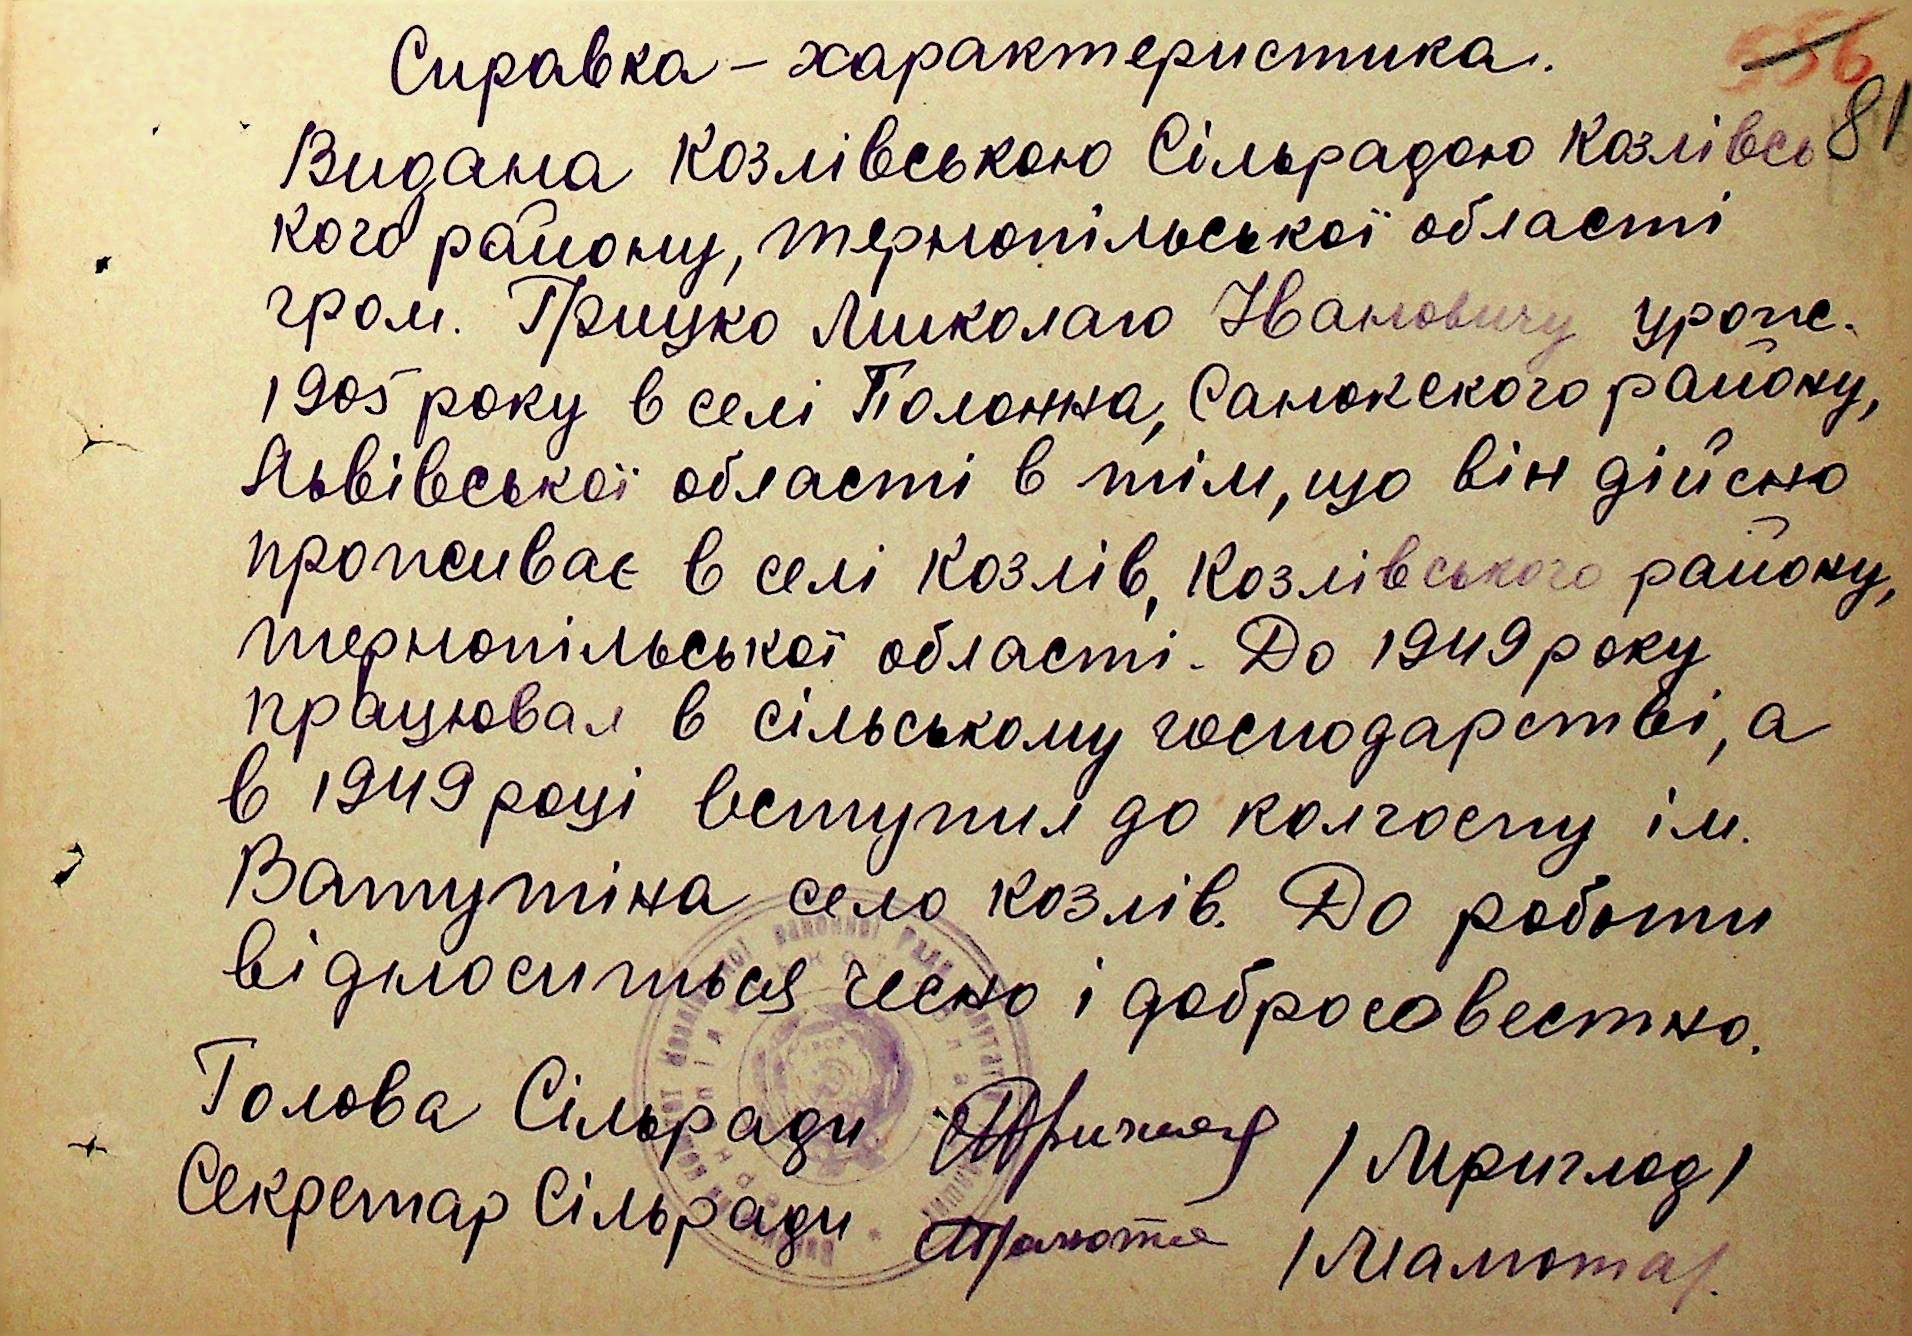 Справка – характеристика.
556
81
Видана Козлівською Сільрадою Козлівсь
кого району, тернопільської області
гром. Грицко Миколаю Івановичу урож.
1905 року в селі Полонна, Санокского району,
Львівської області в тім, що він дійсно
проживає в селі Козлів, Козлівського району,
тернопільської області. До 1949 року
працювал в сільському господарстві, а
в 1949 році вступил до колгоспу ім.
Ватутіна село Козлів. До роботи
відноситься чесно і добросовестно.
Голова Сільради /Мриглод/
Секретар Сільради